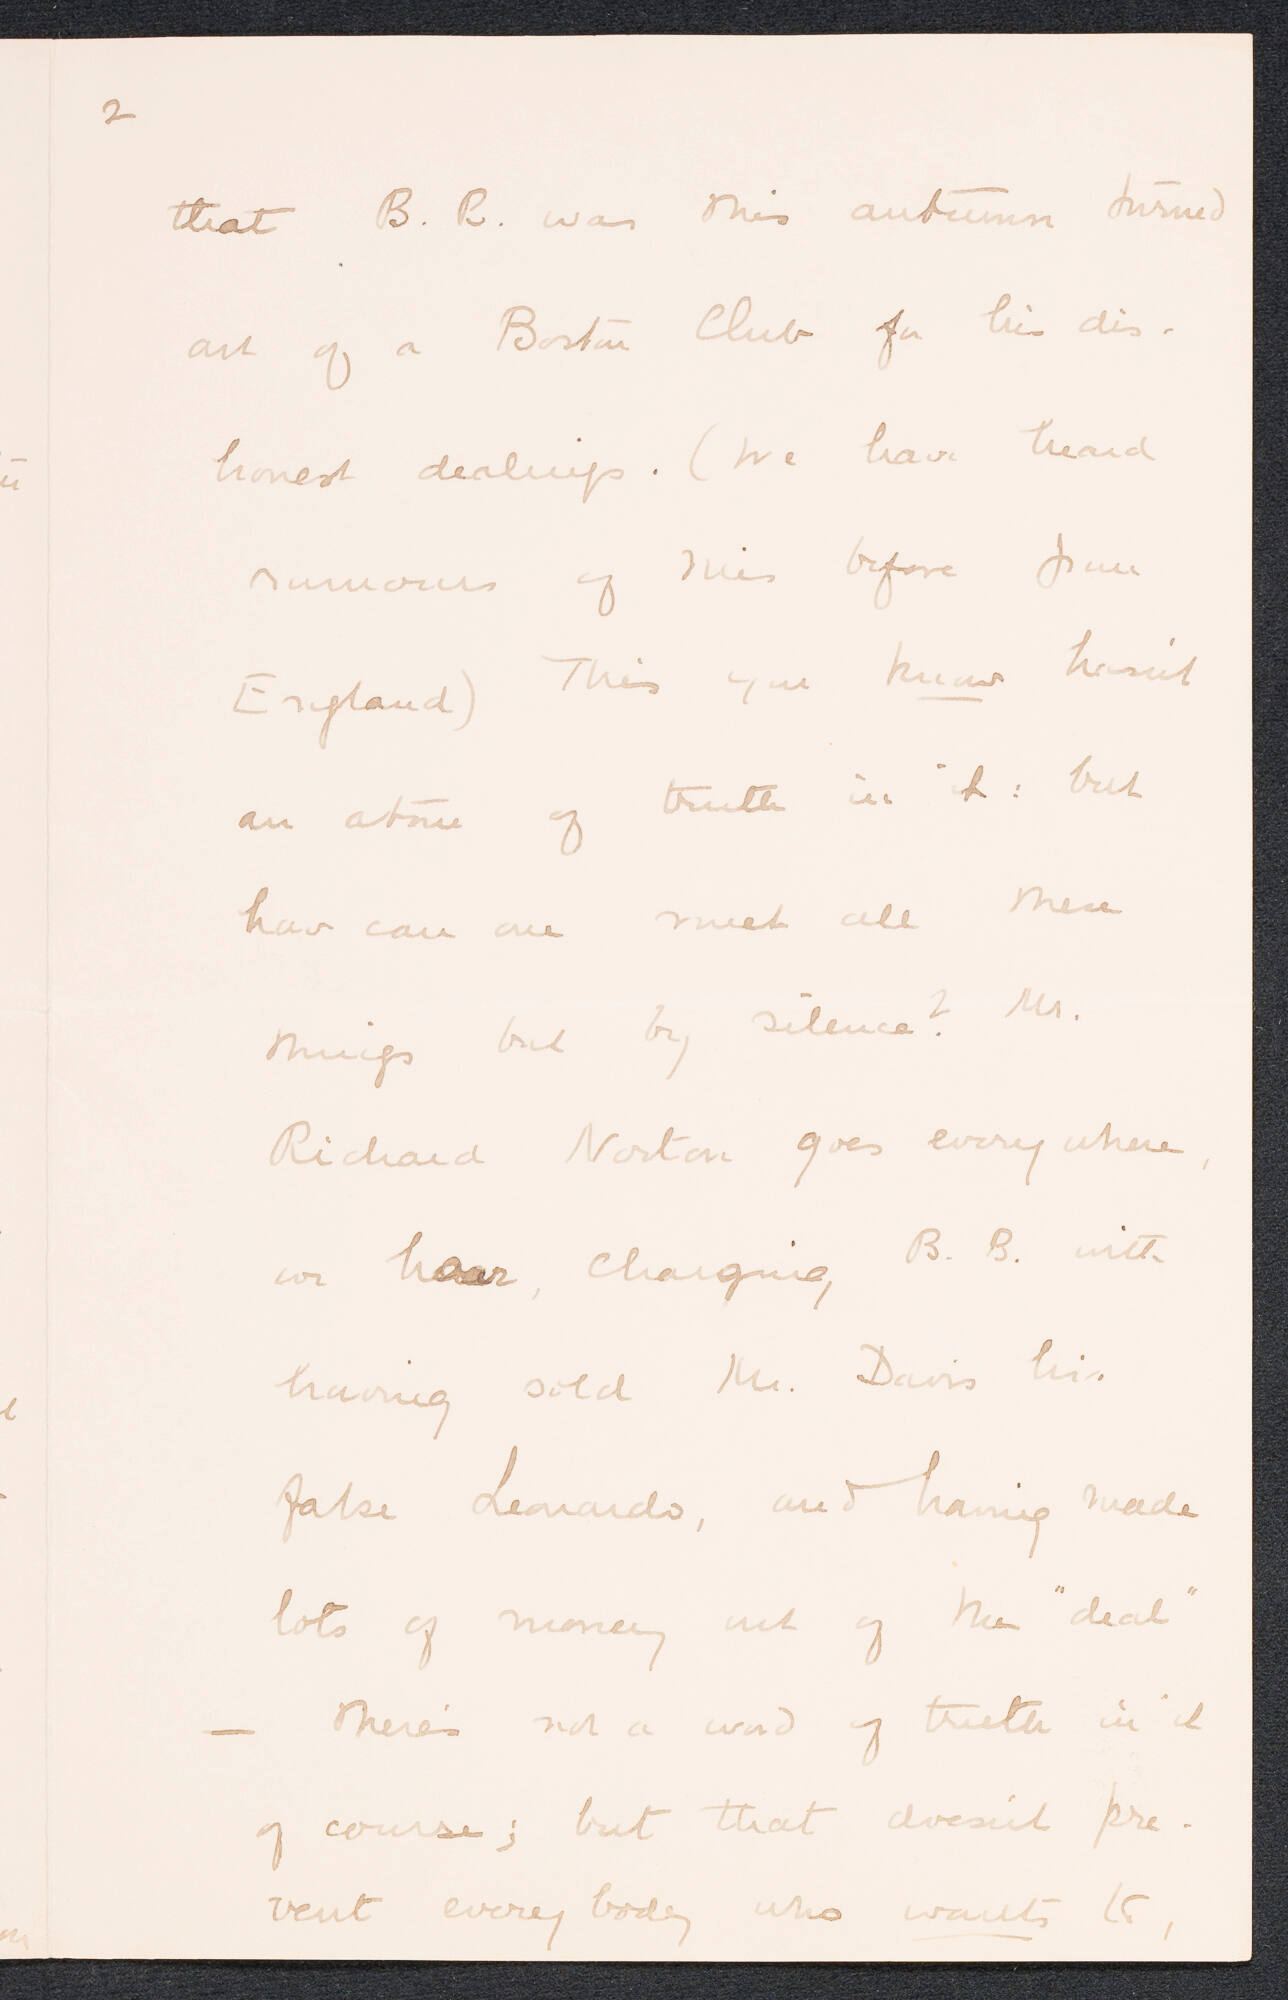 2
that B. B. was this autumn turned
out of a Boston Club for his dis-
honest dealings. (We have heard
rumours of this before from
England) This you know hasn't
an atom of truth in it: but
how can one meet all these
things but by silence? Mr.
Richard Norton goes everywhere,
we hear, charging B. B. with
having sold Mr. Davis his
false Leonardo, and having made
lots of money out of the "deal"
— There's not a word of truth in it
of course; but that doesn't pre-
vent everybody who wants to,